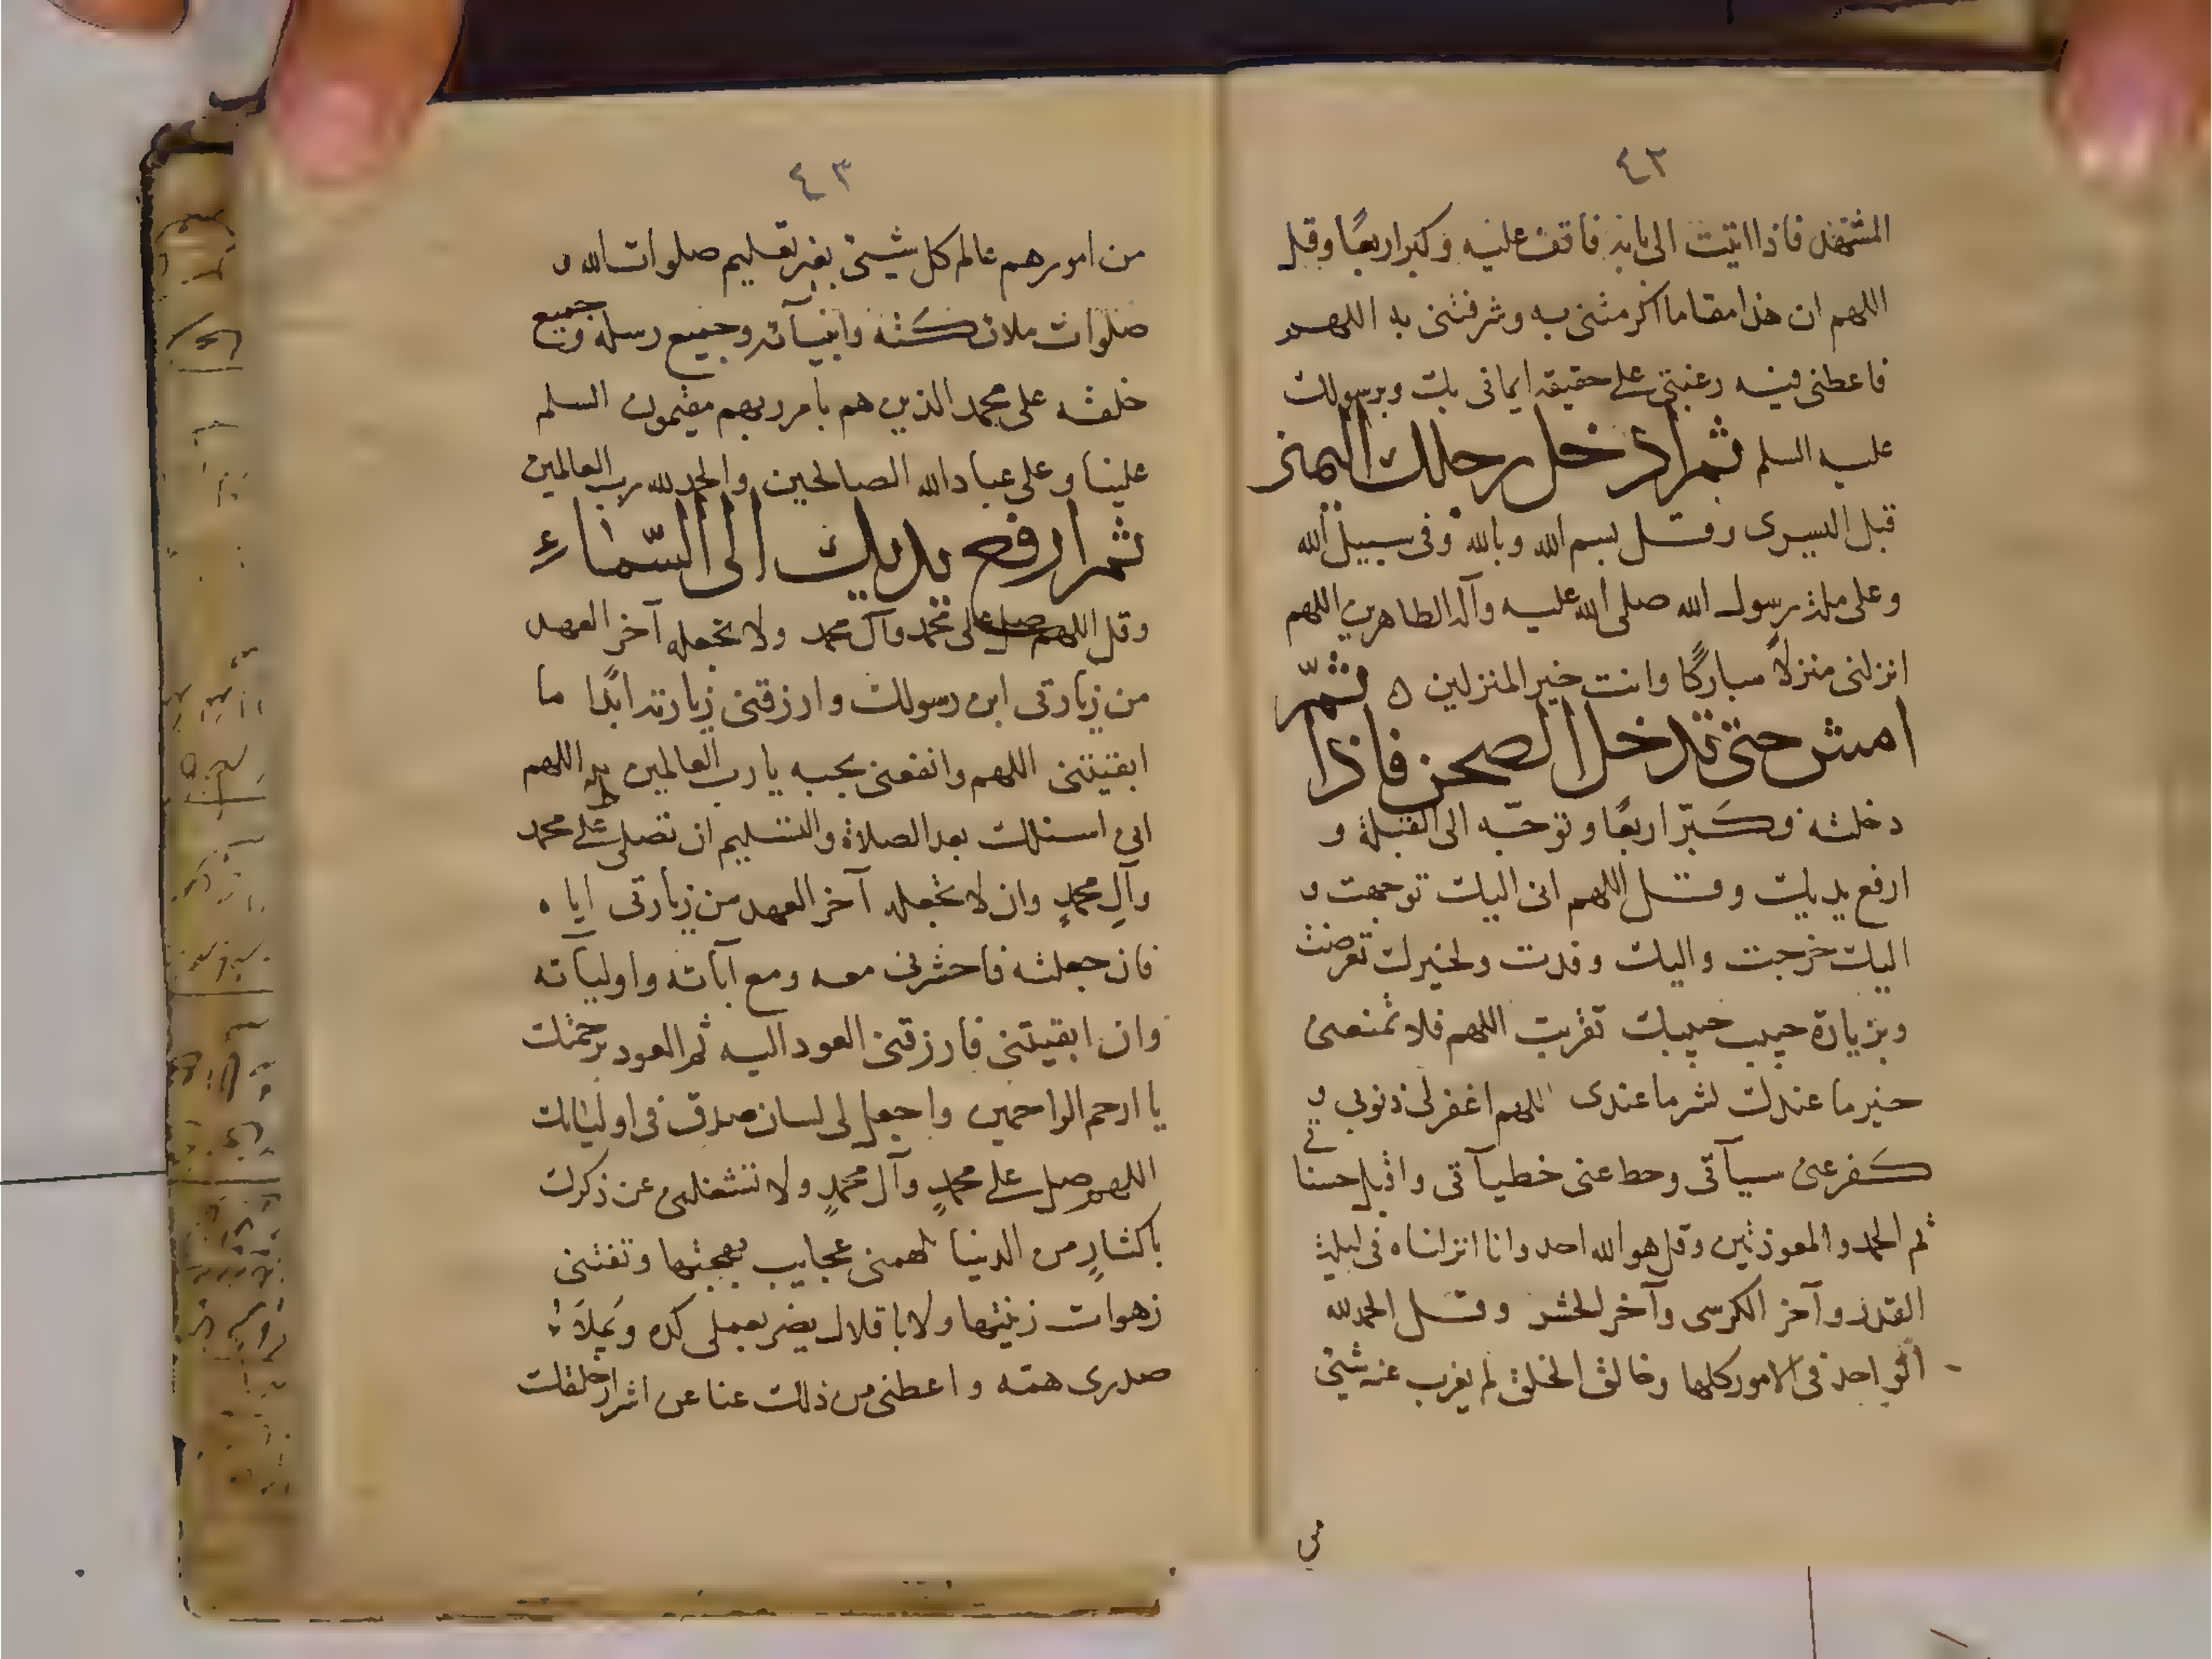 ٤٢
المشهد فاذا اتيت الى بابه فاقف عليه وكبر اربعًا وقل
اللهم ان هذا مقاما اكرمتنى به وشرفتنى به اللهم
فاعطنى فيه رغبتى على حقيقه ايمانى بك وبرسولك
عليه السلم ثم ادخل رجلك اليمنى
قبل اليسرى وقل بسم الله وبالله وفى سبيل الله
وعلى ملة رسول الله صلى الله عليه وآله الطاهرين اللهم
انزلنى منزلاً مباركًا وانت خير المنزلين ثمّ
امش حتى تدخل الصحن فاذا
دخلته وكبّر اربعًا وتوجّه الى القبلة و
ارفع يديك وقل اللهم انى اليك توجهت و
اليك خرجت واليك وفدت ولخيرك تعرضت
وبزيارة حبيب حبيبك تقربت اللهم فلا تمنعنى
خير ما عندك لشر ما عندى اللهم اغفر لى ذنوبى و
كفر عنى سيآتى وحط عنى خطيآتى واقبل حسنا
تى
ثم الحمد والمعوذتين وقل هو الله احد وانا انزلناه فى ليلة
القدر وآخر الكرسى وآخر الحشر وقل الحمد لله
الواحد فى الامور كلها وخالق الخلق لم يعزب عنه شيئ
من
٤٣
من امورهم عالم كل شيئ بغير تعليم صلوات الله و
صلوات ملائكته وانبيآئه وجميع رسله وجميع
خلقه على محمد الذين هم بامر ربهم مقيمون السلم
علينا وعلى عباد الله الصالحين والحمد لله رب العالمين
ثم ارفع يديك الى السّمآء
وقل اللهم صل على محمد وآل محمد ولا تجعله آخر العهد
من زيارتى ابن رسولك وارزقنى زيارته ابدًا ما
ابقيتنى اللهم وانفعنى بحبه يا رب العالمين اللهم
انى اسئلك بعد الصلاة والتسليم ان تصلى على محمد
وآلِ محمدٍ وان لا تجعله آخر العهد من زيارتى اياه
فان جعلته فاحشرنى معه ومع آبائه واوليآئه
وان ابقيتنى فارزقنى العود اليه ثم العود برحمتك
يا ارحم الراحمين واجعل لى لسان صدق فى اوليائك
اللهم صل على محمدٍ وآل محمدٍ ولا تشغلنى عن ذكرك
باكثارٍ من الدنيا تلهينى عجايب بهجتها وتفتنى
زهوات زينتها ولا باقلال يضر بعملى كده ويَملأ
صدرى همّه واعطنى من ذلك غنا عن اشرار خلقك